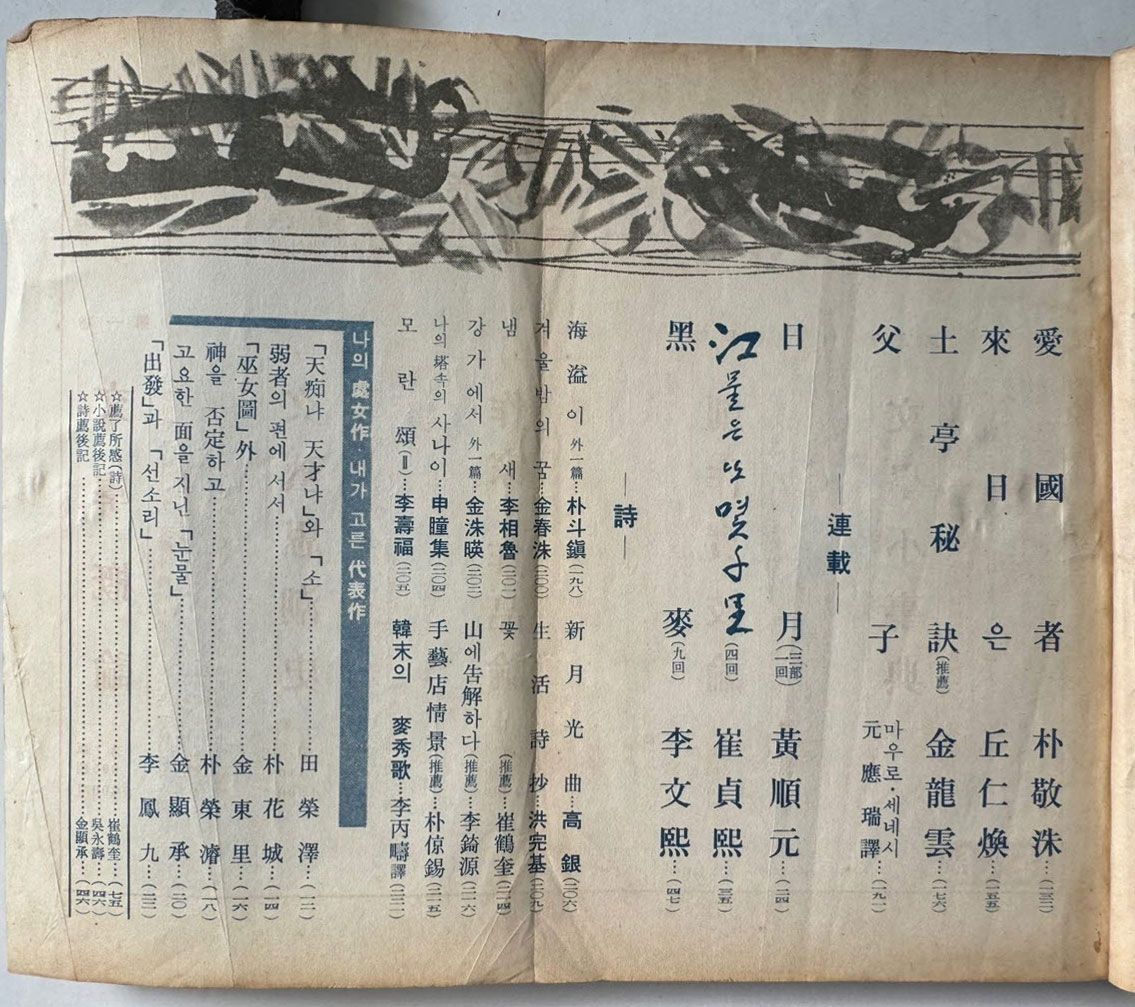 愛國者 朴敬洙…(一三二)
來日은 丘仁煥…(一五五)
土亭秘訣(推薦) 金龍雲…(一七六)
父子 마우로·세네시 元應瑞譯…(一九一)
―連載―
日月(三部一回) 黃順元…(二四)
江물은 또 몇 千里(四回) 崔貞熙…(三五)
黑麥(九回) 李文熙…(四七)
―詩―
海溢이 外一篇…朴斗鎭(一九八)
新月光曲…高銀(二〇六)
겨울밤의 꿈…金春洙(二〇〇)
生活詩抄…洪完基(二〇九)
냄새…李相魯(二〇一)
꽃(推薦)…崔鶴奎(二一四)
강가에서 外一篇…金洙暎(二〇三)
山에 告解하다(推薦)…李錡源(二一六)
나의 塔속의 사나이…申瞳集(二〇四)
手藝店情景(推薦)…朴倞錫(二一五)
모란頌(Ⅱ)…李壽福(二〇五)
韓末의 麥秀歌…李丙疇譯(二三一)
나의 處女作·내가 고른 代表作
「天痴냐 天才냐」와 「소」………田榮澤…(一二)
弱者의 편에 서서………朴花城…(一四)
「巫女圖」外………金東里…(一六)
神을 否定하고………朴榮濬…(一八)
고요한 面을 지닌 「눈물」………金顯承…(二〇)
「出發」과 「선소리」………李鳳九…(二二)
☆薦了所感(詩)………崔鶴奎…(七五)
☆小說薦後記………吳永壽…(四六)
☆詩薦後記………金顯承…(四六)